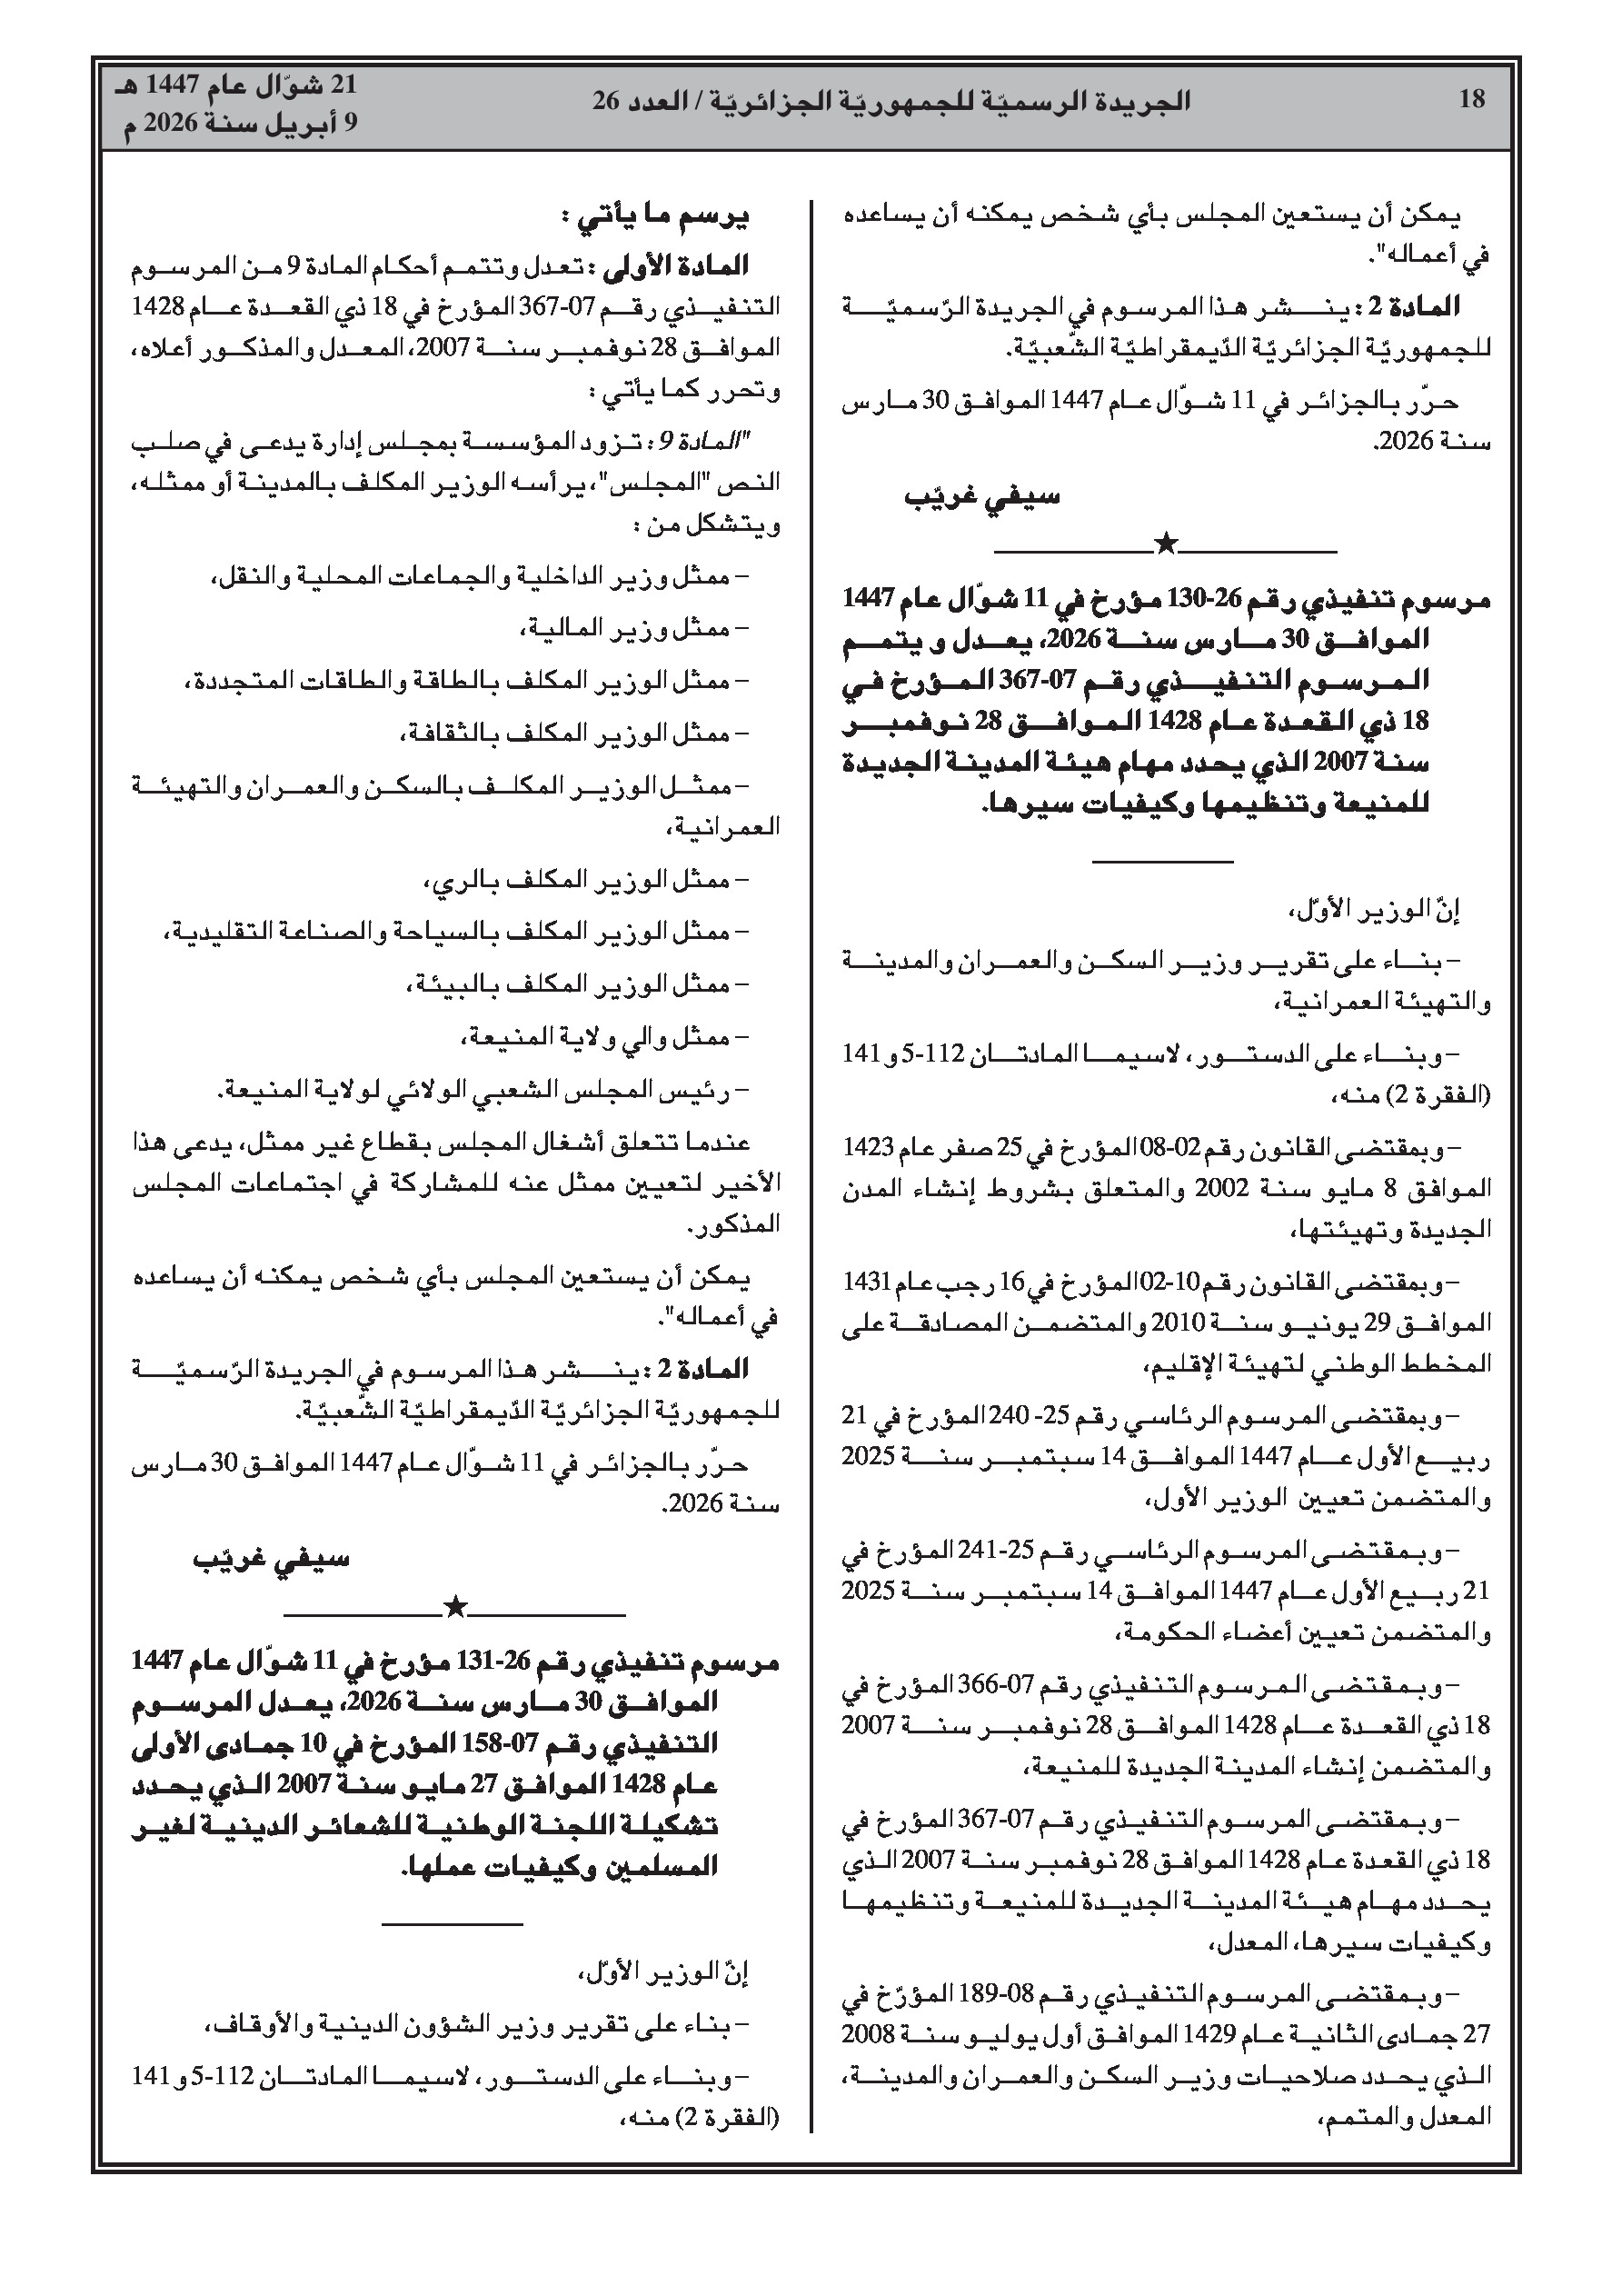 18
الجريدة الرسميّة للجمهوريّة الجزائريّة / العدد 26
21 شوّال عام 1447 هـ
9 أبريل سنة 2026 م
يمكن أن يستعين المجلس بأي شخص يمكنه أن يساعده
في أعماله".
المادة 2 : ينشر هذا المرسوم في الجريدة الرّسميّة
للجمهوريّة الجزائريّة الدّيمقراطيّة الشّعبيّة.
حرّر بالجزائر في 11 شوّال عام 1447 الموافق 30 مارس
سنة 2026.
سيفي غريّب
★
مرسوم تنفيذي رقم 26-130 مؤرخ في 11 شوّال عام 1447
الموافق 30 مارس سنة 2026، يعدل و يتمم
المرسوم التنفيذي رقم 07-367 المؤرخ في
18 ذي القعدة عام 1428 الموافق 28 نوفمبر
سنة 2007 الذي يحدد مهام هيئة المدينة الجديدة
للمنيعة وتنظيمها وكيفيات سيرها.
إنّ الوزير الأوّل،
– بناء على تقرير وزير السكن والعمران والمدينة
والتهيئة العمرانية،
– وبناء على الدستور، لاسيما المادتان 112-5 و141
(الفقرة 2) منه،
– وبمقتضى القانون رقم 02-08 المؤرخ في 25 صفر عام 1423
الموافق 8 مايو سنة 2002 والمتعلق بشروط إنشاء المدن
الجديدة وتهيئتها،
– وبمقتضى القانون رقم 10-02 المؤرخ في 16 رجب عام 1431
الموافق 29 يونيو سنة 2010 والمتضمن المصادقة على
المخطط الوطني لتهيئة الإقليم،
– وبمقتضى المرسوم الرئاسي رقم 25- 240 المؤرخ في 21
ربيع الأول عام 1447 الموافق 14 سبتمبر سنة 2025
والمتضمن تعيين الوزير الأول،
– وبمقتضى المرسوم الرئاسي رقم 25-241 المؤرخ في
21 ربيع الأول عام 1447 الموافق 14 سبتمبر سنة 2025
والمتضمن تعيين أعضاء الحكومة،
– وبمقتضى المرسوم التنفيذي رقم 07-366 المؤرخ في
18 ذي القعدة عام 1428 الموافق 28 نوفمبر سنة 2007
والمتضمن إنشاء المدينة الجديدة للمنيعة،
– وبمقتضى المرسوم التنفيذي رقم 07-367 المؤرخ في
18 ذي القعدة عام 1428 الموافق 28 نوفمبر سنة 2007 الذي
يحدد مهام هيئة المدينة الجديدة للمنيعة وتنظيمها
وكيفيات سيرها، المعدل،
– وبمقتضى المرسوم التنفيذي رقم 08-189 المؤرّخ في
27 جمادى الثانية عام 1429 الموافق أول يوليو سنة 2008
الذي يحدد صلاحيات وزير السكن والعمران والمدينة،
المعدل والمتمم،
يرسم ما يأتي :
المادة الأولى : تعدل وتتمم أحكام المادة 9 من المرسوم
التنفيذي رقم 07-367 المؤرخ في 18 ذي القعدة عام 1428
الموافق 28 نوفمبر سنة 2007، المعدل والمذكور أعلاه،
وتحرر كما يأتي :
"المادة 9 : تزود المؤسسة بمجلس إدارة يدعى في صلب
النص "المجلس"، يرأسه الوزير المكلف بالمدينة أو ممثله،
ويتشكل من :
– ممثل وزير الداخلية والجماعات المحلية والنقل،
– ممثل وزير المالية،
– ممثل الوزير المكلف بالطاقة والطاقات المتجددة،
– ممثل الوزير المكلف بالثقافة،
– ممثل الوزير المكلف بالسكن والعمران والتهيئة
العمرانية،
– ممثل الوزير المكلف بالري،
– ممثل الوزير المكلف بالسياحة والصناعة التقليدية،
– ممثل الوزير المكلف بالبيئة،
– ممثل والي ولاية المنيعة،
– رئيس المجلس الشعبي الولائي لولاية المنيعة.
عندما تتعلق أشغال المجلس بقطاع غير ممثل، يدعى هذا
الأخير لتعيين ممثل عنه للمشاركة في اجتماعات المجلس
المذكور.
يمكن أن يستعين المجلس بأي شخص يمكنه أن يساعده
في أعماله".
المادة 2 : ينشر هذا المرسوم في الجريدة الرّسميّة
للجمهوريّة الجزائريّة الدّيمقراطيّة الشّعبيّة.
حرّر بالجزائر في 11 شوّال عام 1447 الموافق 30 مارس
سنة 2026.
سيفي غريّب
★
مرسوم تنفيذي رقم 26-131 مؤرخ في 11 شوّال عام 1447
الموافق 30 مارس سنة 2026، يعدل المرسوم
التنفيذي رقم 07-158 المؤرخ في 10 جمادى الأولى
عام 1428 الموافق 27 مايو سنة 2007 الذي يحدد
تشكيلة اللجنة الوطنية للشعائر الدينية لغير
المسلمين وكيفيات عملها.
إنّ الوزير الأوّل،
– بناء على تقرير وزير الشؤون الدينية والأوقاف،
– وبناء على الدستور، لاسيما المادتان 112-5 و141
(الفقرة 2) منه،